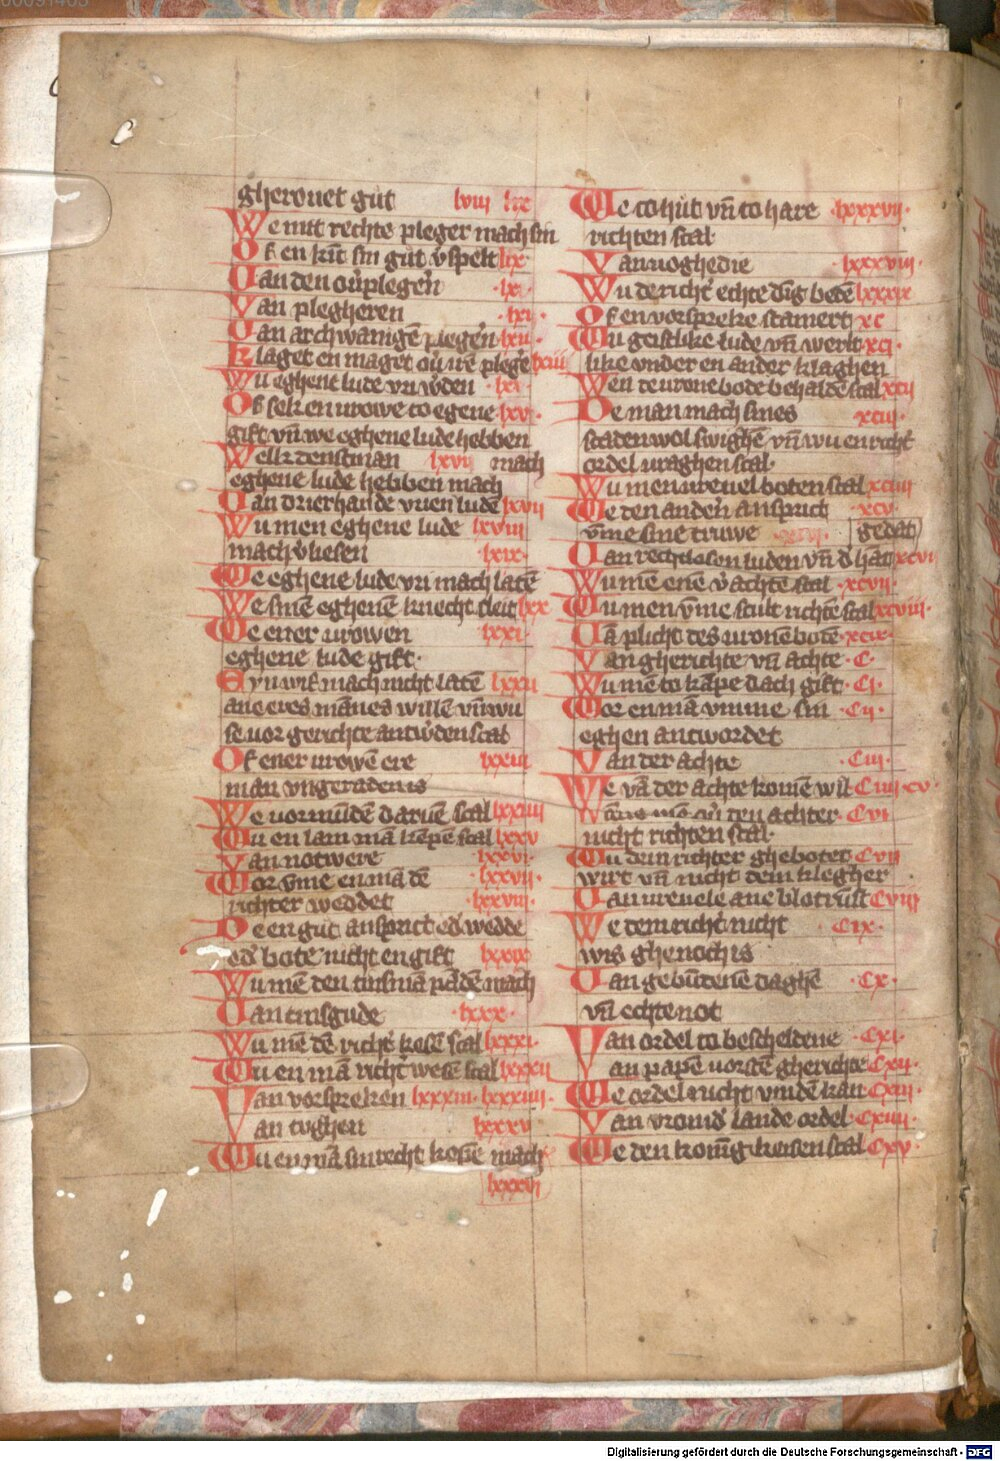 gherouet gut lviii lix
We mit rechte pleger mach sin
Of en kīt sin gut v̓spelt lx
Uan den ou̓plegern · lx ·
Van plegheren · lxi ·
Uan archwanigē plegern · lxii ·
Klaget en maget ou̓ irē plegē lxiii
Wu eghene lude vri w̓den · lxv ·
Of felk en urowe to egene lxvi ·
gift vn̄ we eghene lude hebben
Welk denstman lxvii mach
eghene lude hebben mach
Uan drierhande vrien ludē lxvii
Wu men eghene lude lxviii
mach v̓liesen lxix ·
We eghene lude vri mach latē
We sinē eghenē knecht sleit lxx
We ener urowen lxxi ·
eghene lude gift ·
Eyn wif mach nicht latē lxxii
ane eres mānes willē vn̄ wu
se uor gerichte antw̓den scal
Of ener urowē ere lxxiii
man vngeradenis
We uormūdē daruē scal lxxiiii
Wu en lam mā kēpē scal lxxv
Van notwere lxxvi ·
Wor v̄me en mā dē · lxxvii ·
richter weddet · lxxviii ·
De en gut ansprict ed̓ wedde
ed̓ bote nicht en gift lxxix
Wu mē den tinsmā pādē mach
Uan tinsgude · lxxx ·
Wu mē dē richt̓ kesē scal lxxxi
Wu en mā richt̓ wesē scal lxxxii
Van vorspreken lxxxiii · lxxxiiii ·
Van tughen lxxxv
Wu en mā sin recht kosē mach
lxxxvi
We to hut vn̄ to hare · lxxxvii ·
richten scal
Van uoghedie · lxxxviii ·
Wu de richt̓ echte dīg bedē lxxxix
Of en vorspreke stamert xc
Wu geistlike lude vn̄ werlt xci ·
like vnder en ander klaghen
Wen de urone bode behaldē scal xcii
De man mach sines xciii ·
scaden wol swighē vn̄ wu en richt̓
ordel uraghen scal ·
Wu men ureuel boten scal xciiii
We den andern ansprict · xcv ·
v̄me sine truwe gedan
Uan rechtlosen luden vn̄ d̓ hā xcvi
Wu mē enē v̓achtē scal · xcvii ·
Wu men v̄me scult richtē scal xcviii ·
Uā plicht des uronē botē · xcix ·
Van gherichte vn̄ achte · C ·
Wu mē to kāpe dach gift · Ci ·
Wor en mā vmme sin · Cii ·
eghen antwordet
Van der achte · Ciii ·
We vā der achte komē wil Ciiii · cv ·
den achter · Cvi
nicht richten scal ·
Wu dem richter ghebotet Cvii
wirt vn̄ nicht dem klegher
Uan ureuele ane blotrūst Cviii
We dem richt̓ nicht · Cix ·
wis ghenoch is
Uan gebūdenē daghē · Cx ·
vn̄ echte not
Van ordel to bescheldene · Cxi ·
Van papē uorstē gherichte Cxii ·
We ordel nicht vindē kan Cxiii ·
Van uromd̓ lande ordel · Cxiiii ·
We den konīg keisen scal Cxv ·
Digitalisierung gefördert durch die Deutsche Forschungsgemeinschaft - DFG